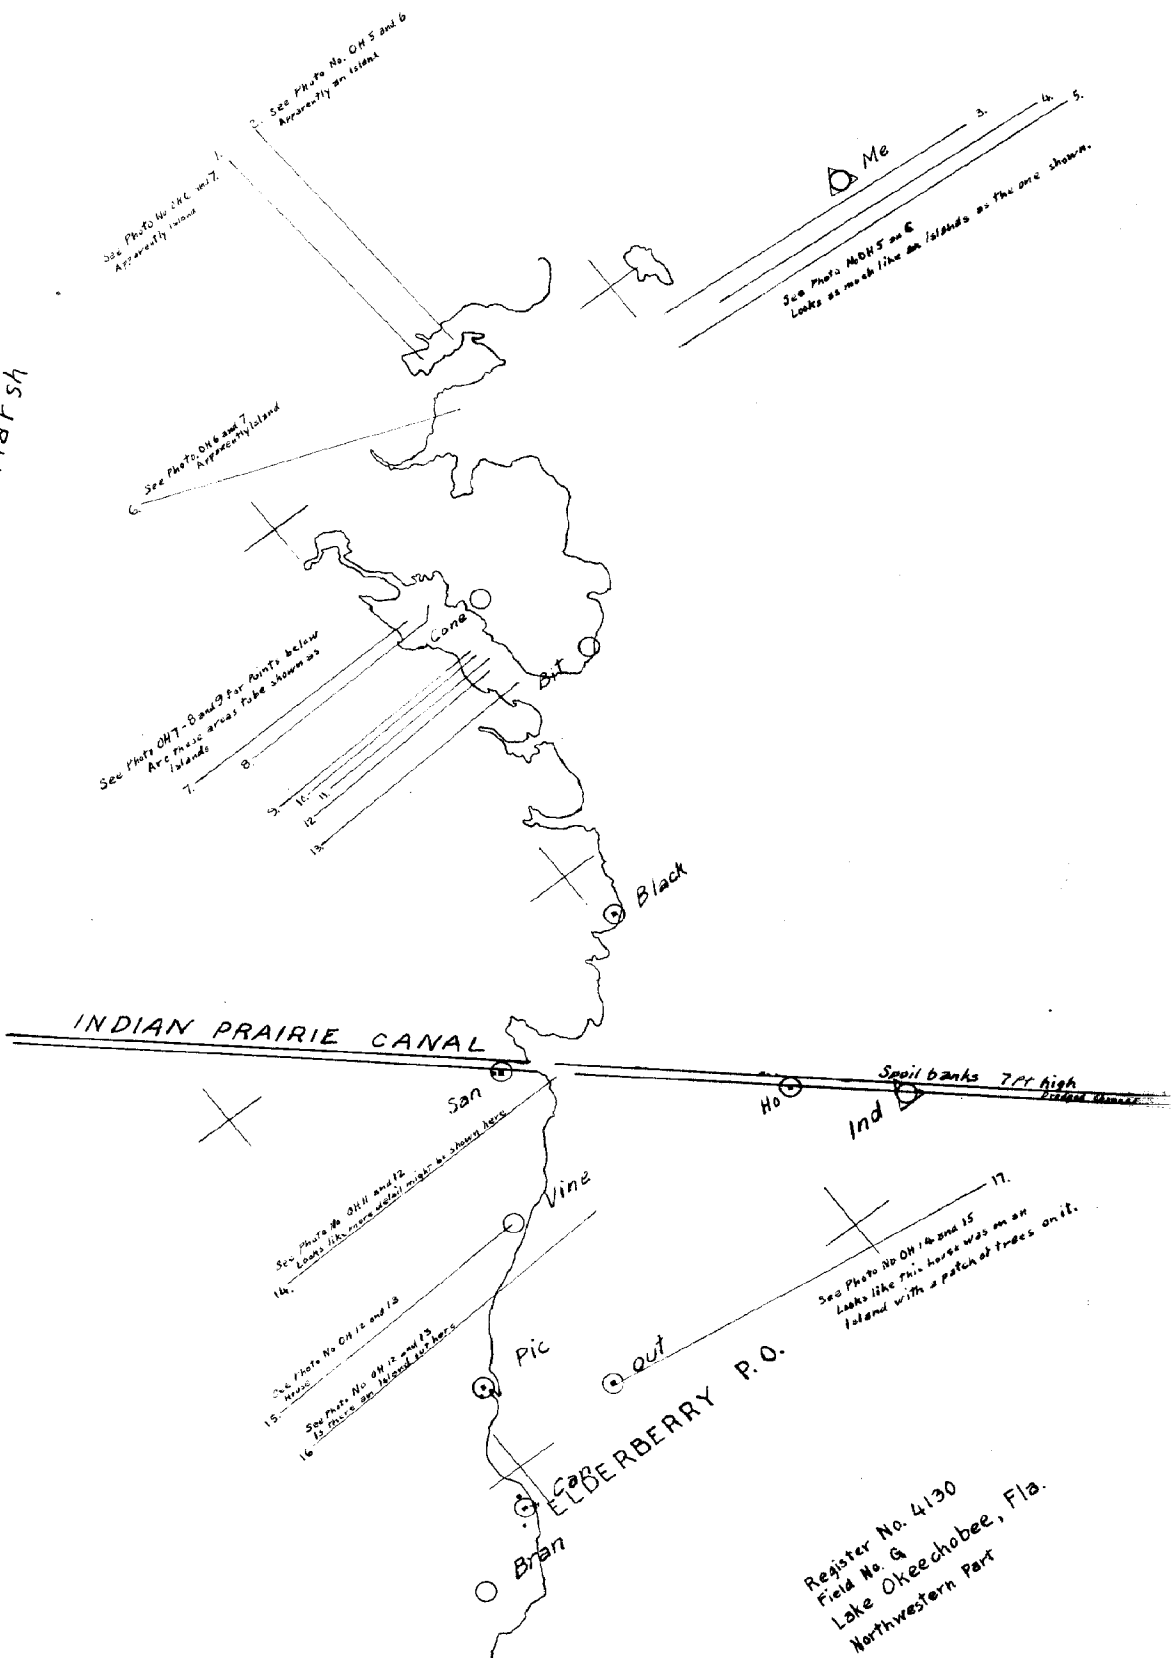 2. See Photo No. OH 5 and 6
Apparently an island
1.
See Photo No OH6 and 7.
Apparently island
3.
4.
5.
Me
See Photo No OH 5 and 6
Looks as much like an islands as the one shown.
Marsh
See Photo. OH 6 and 7
Apparently island
6.
Cane
Bit
See Photo OH 7-8 and 9 for Points below
Are these areas to be shown as
islands
7.
8.
9.
10.
11.
12
13.
Black
INDIAN PRAIRIE CANAL
San
Spoil banks 7 Ft high
Dredged Channel
Ho
Ind
See Photo No OH 11 and 12
Looks like more detail might be shown here
14.
Vine
17.
See Photo No OH 14 and 15
Looks like this house was on an
island with a patch of trees on it.
See Photo No OH 12 and 13
House
15.
See Photo No OH 12 and 13
Is there an island out here
16
Pic
Out
ELDERBERRY P.O.
Cap
Bran
Register No. 4130
Field No. G
Lake Okeechobee, Fla.
Northwestern Part